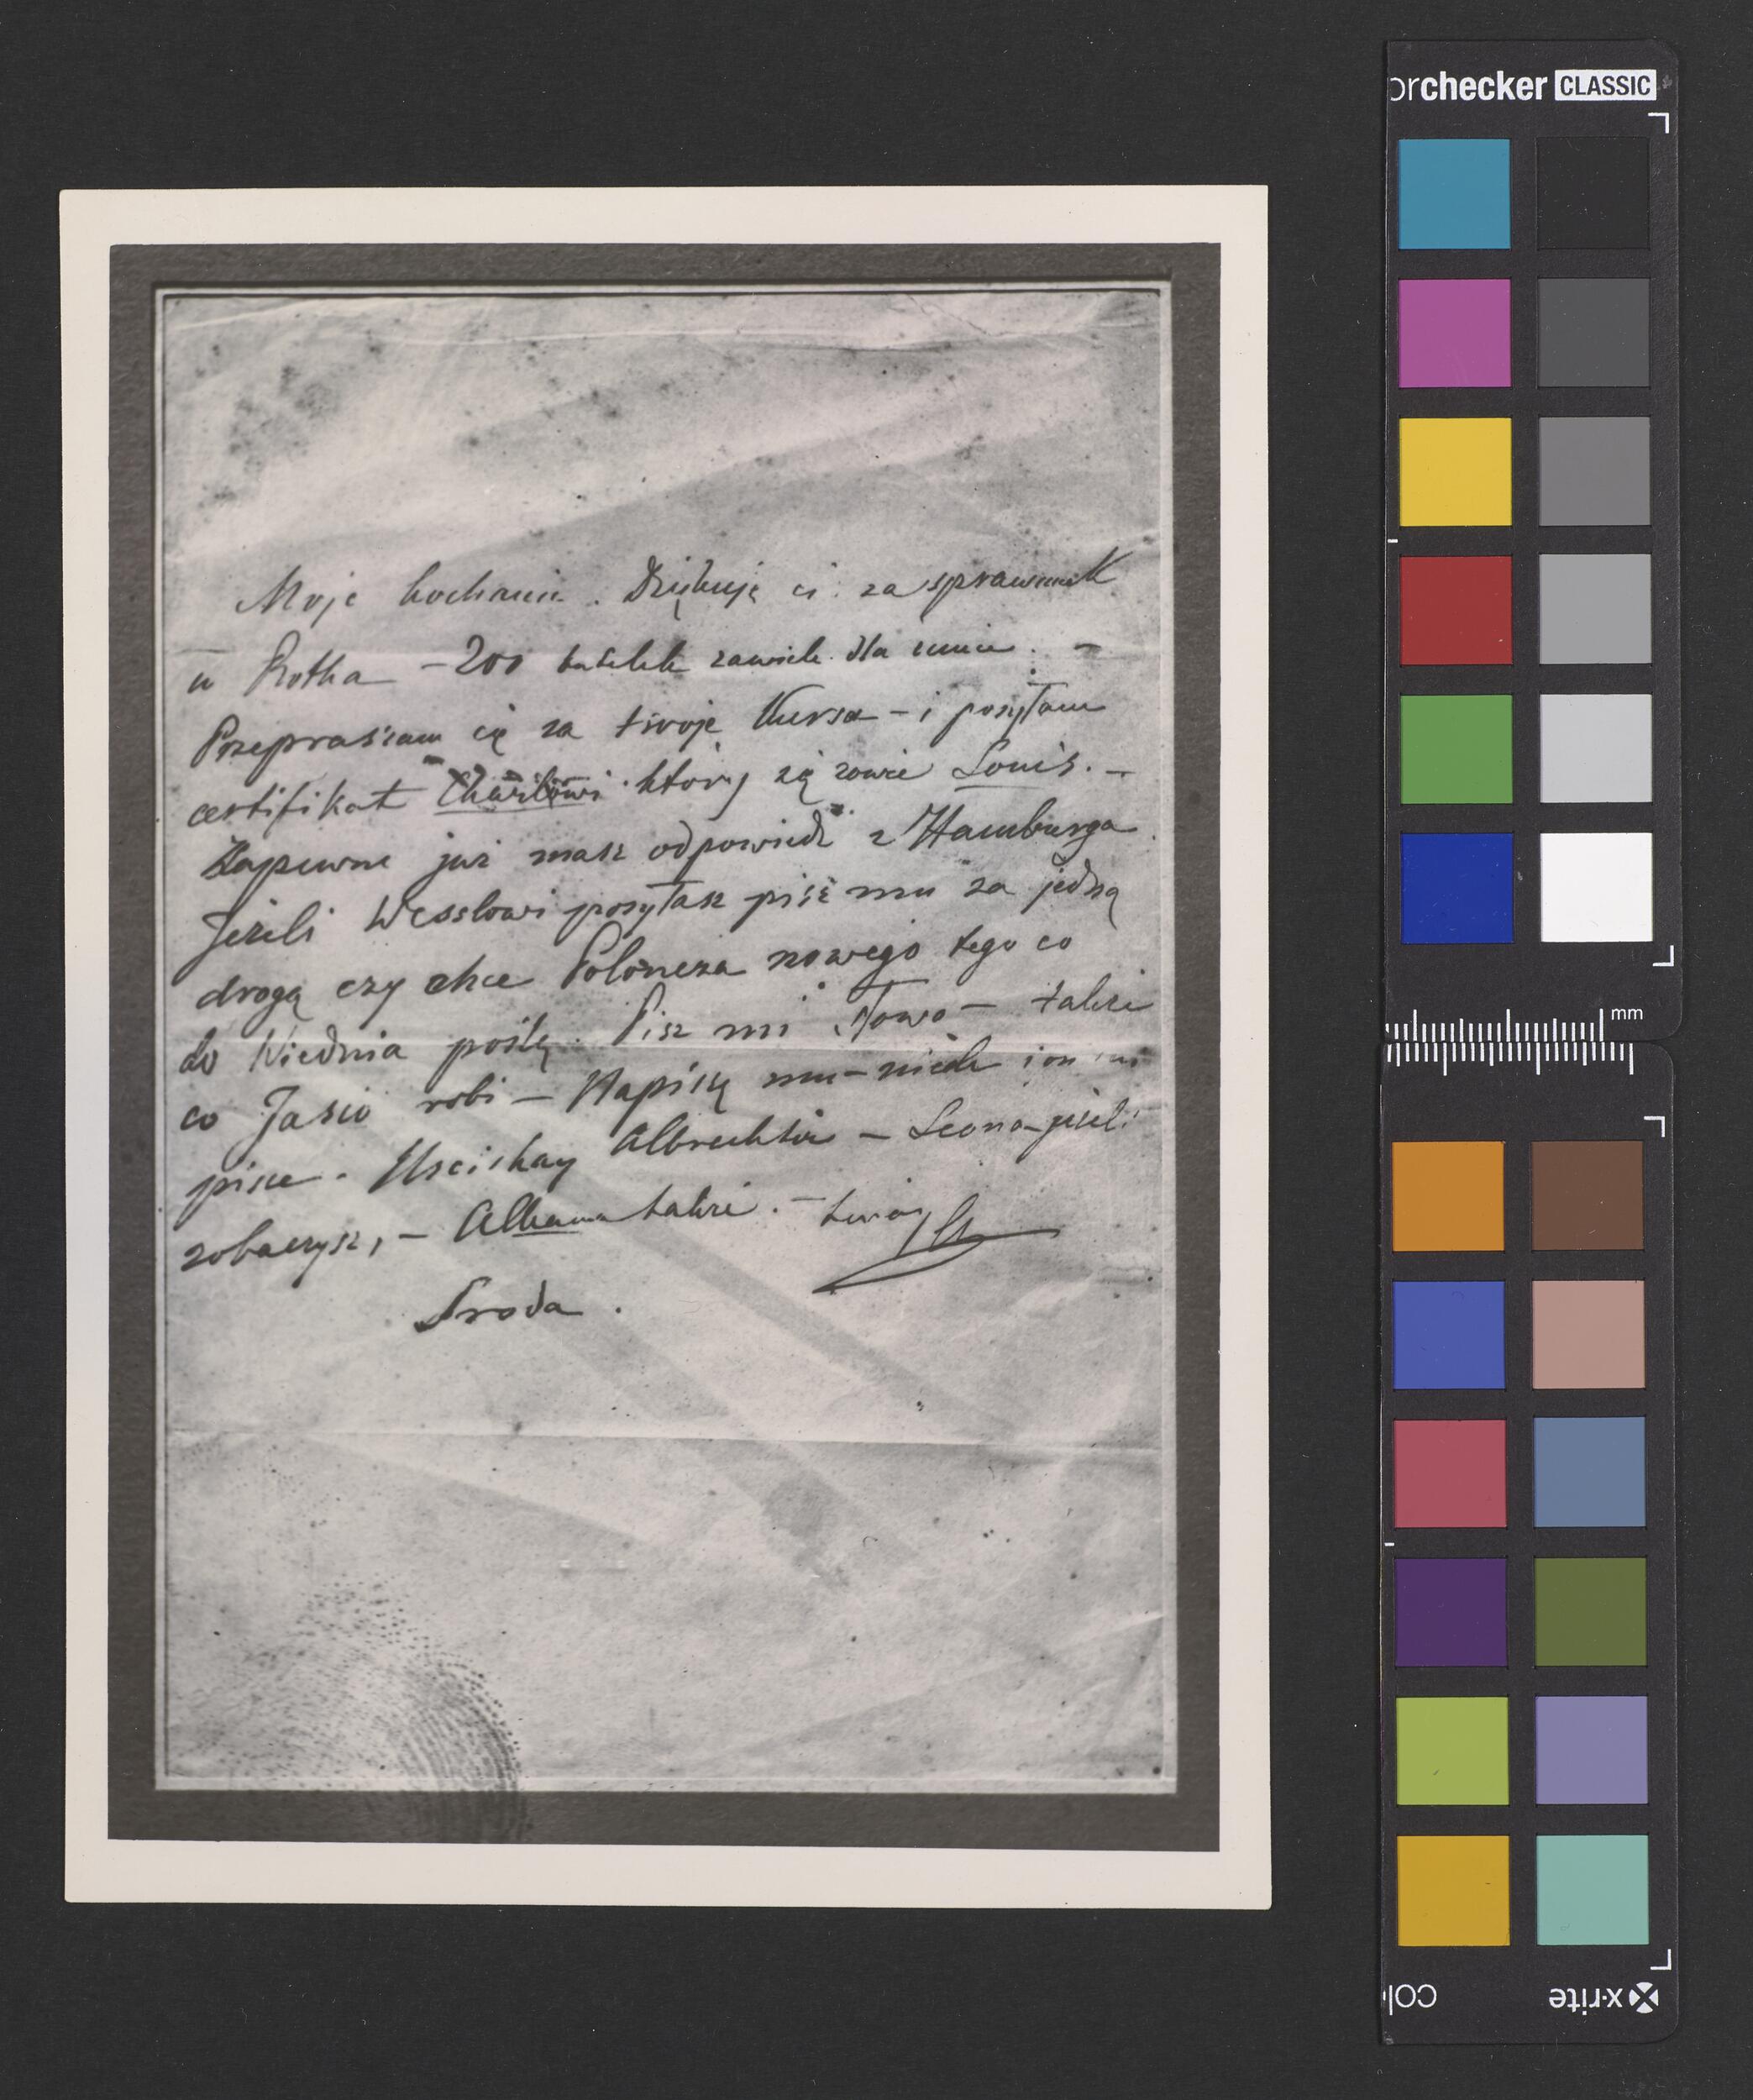 Moje kochanie. Dziękuję ci za sprawunek
u Rotha – 200 butelek zawiele dla mnie. –
Przepraszam cię za twoje Kursa – i posyłam
certifikat Charlowi który się zowie Louis. –
Zapewne już masz odpowiedź z Hamburga.
Jeżeli Wesslowi posyłasz pisz mu za jedną
drogą czy chce Poloneza nowego tego co
do Wiednia poślę. Pisz mi słowo – także
co Jasio robi – Napiszę mu – niech i on mi
pisze. Usciskay Albrechta – Leona jeżeli
zobaczysz, – Albana także. – twój Ch
Sroda.
orchecker CLASSIC
mm
x·rite
col